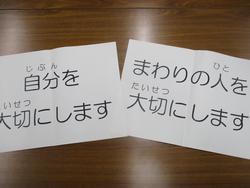 じぶん
自分を
たいせつ
大切にします
ひと
まわりの人を
たいせつ
大切にします